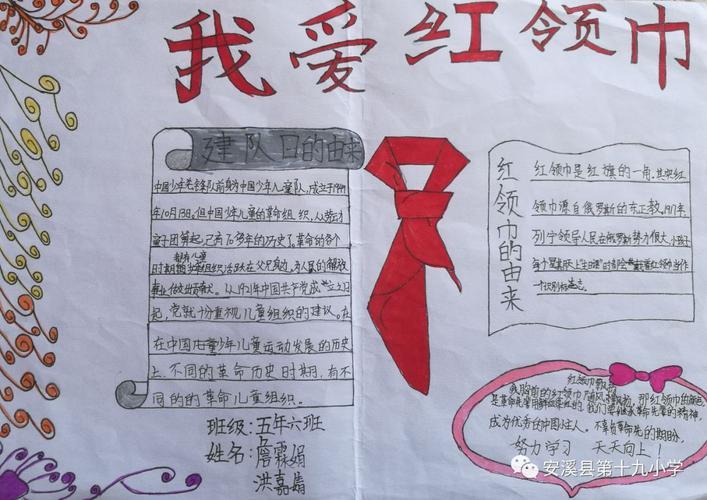 我爱红领巾
建队日的由来
中国少年先锋队前身为中国少年儿童队,成立于1949
年10月13日。但中国少年儿童的革命组织,从劳动
童子团算起,已有70多年的历史了。革命的各个
时期都有儿童组织活跃在父兄身边,为人民的解放
事业作出贡献。从1921年中国共产党成立之日
起,党就十分重视儿童组织的建议。在
在中国少年儿童运动发展的历史
上,不同的革命历史时期,有不
同的的革命儿童组织。
班级:五年六班
姓名:詹霖娟
洪嘉
红领巾的由来
红领巾是红旗的一角,其实红
领巾源自俄罗斯的东正教。1917年,
列宁领导人民在俄罗斯努力很大,小孩子
红领巾当作
一个识别标志。
红领巾
我胸前的红领巾随风飘扬,那红领巾的颜色
是革命先辈用鲜血染红的。我们要继承革命先辈的精神,
成为优秀的中国主人。不辜负革命先的期盼。
努力学习 天天向上!
安溪县第十九小学